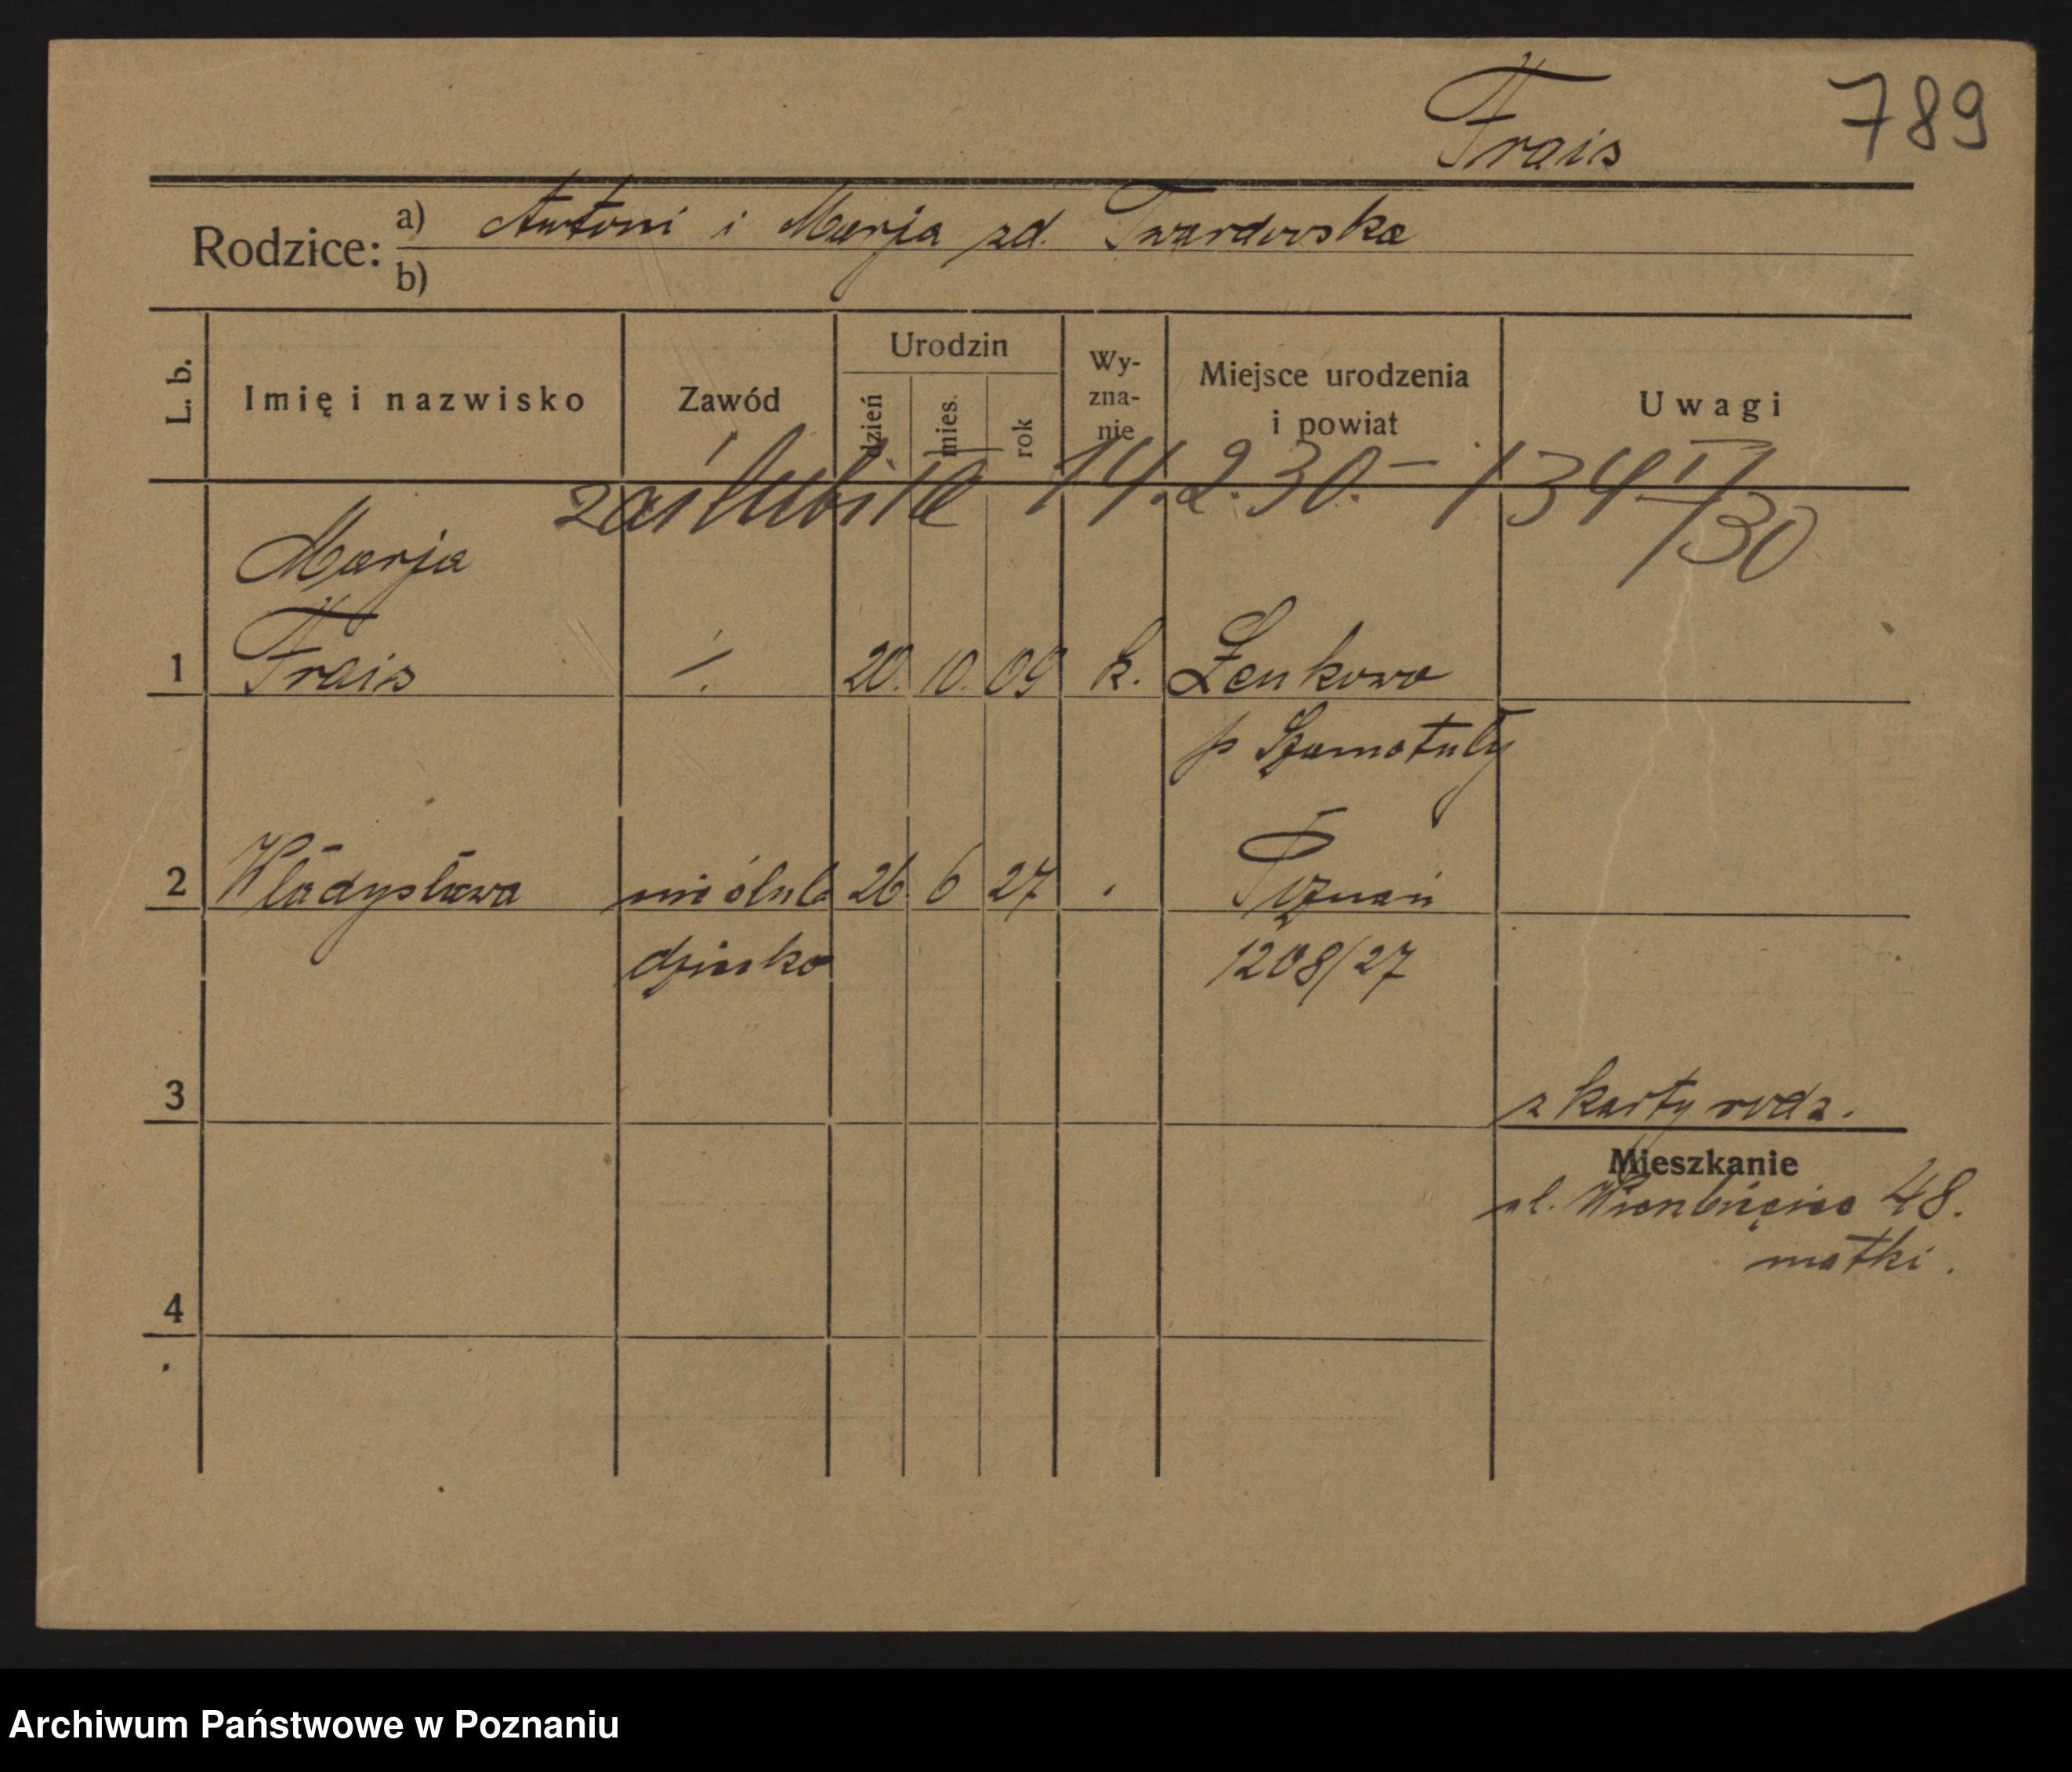 Frais
789
Rodzice: a) Antoni i Marja zd. Twardowska
b)
L. b.
Imię i nazwisko
Zawód
Urodzin
dzień
mies.
rok
Wy-
zna-
nie
Miejsce urodzenia
i powiat
Uwagi
zaślubiła 14.2.30. – 134 IV/30
Marja
1 Frais /. 20. 10. 09 k. Lenkowo
p Szamotuły
2 Władysława nieślub 26. 6 27 Poznań
dziecko 1208/27
3 z karty rodz.
Mieszkanie
ul. 48.
matki.
4
Archiwum Państwowe w Poznaniu